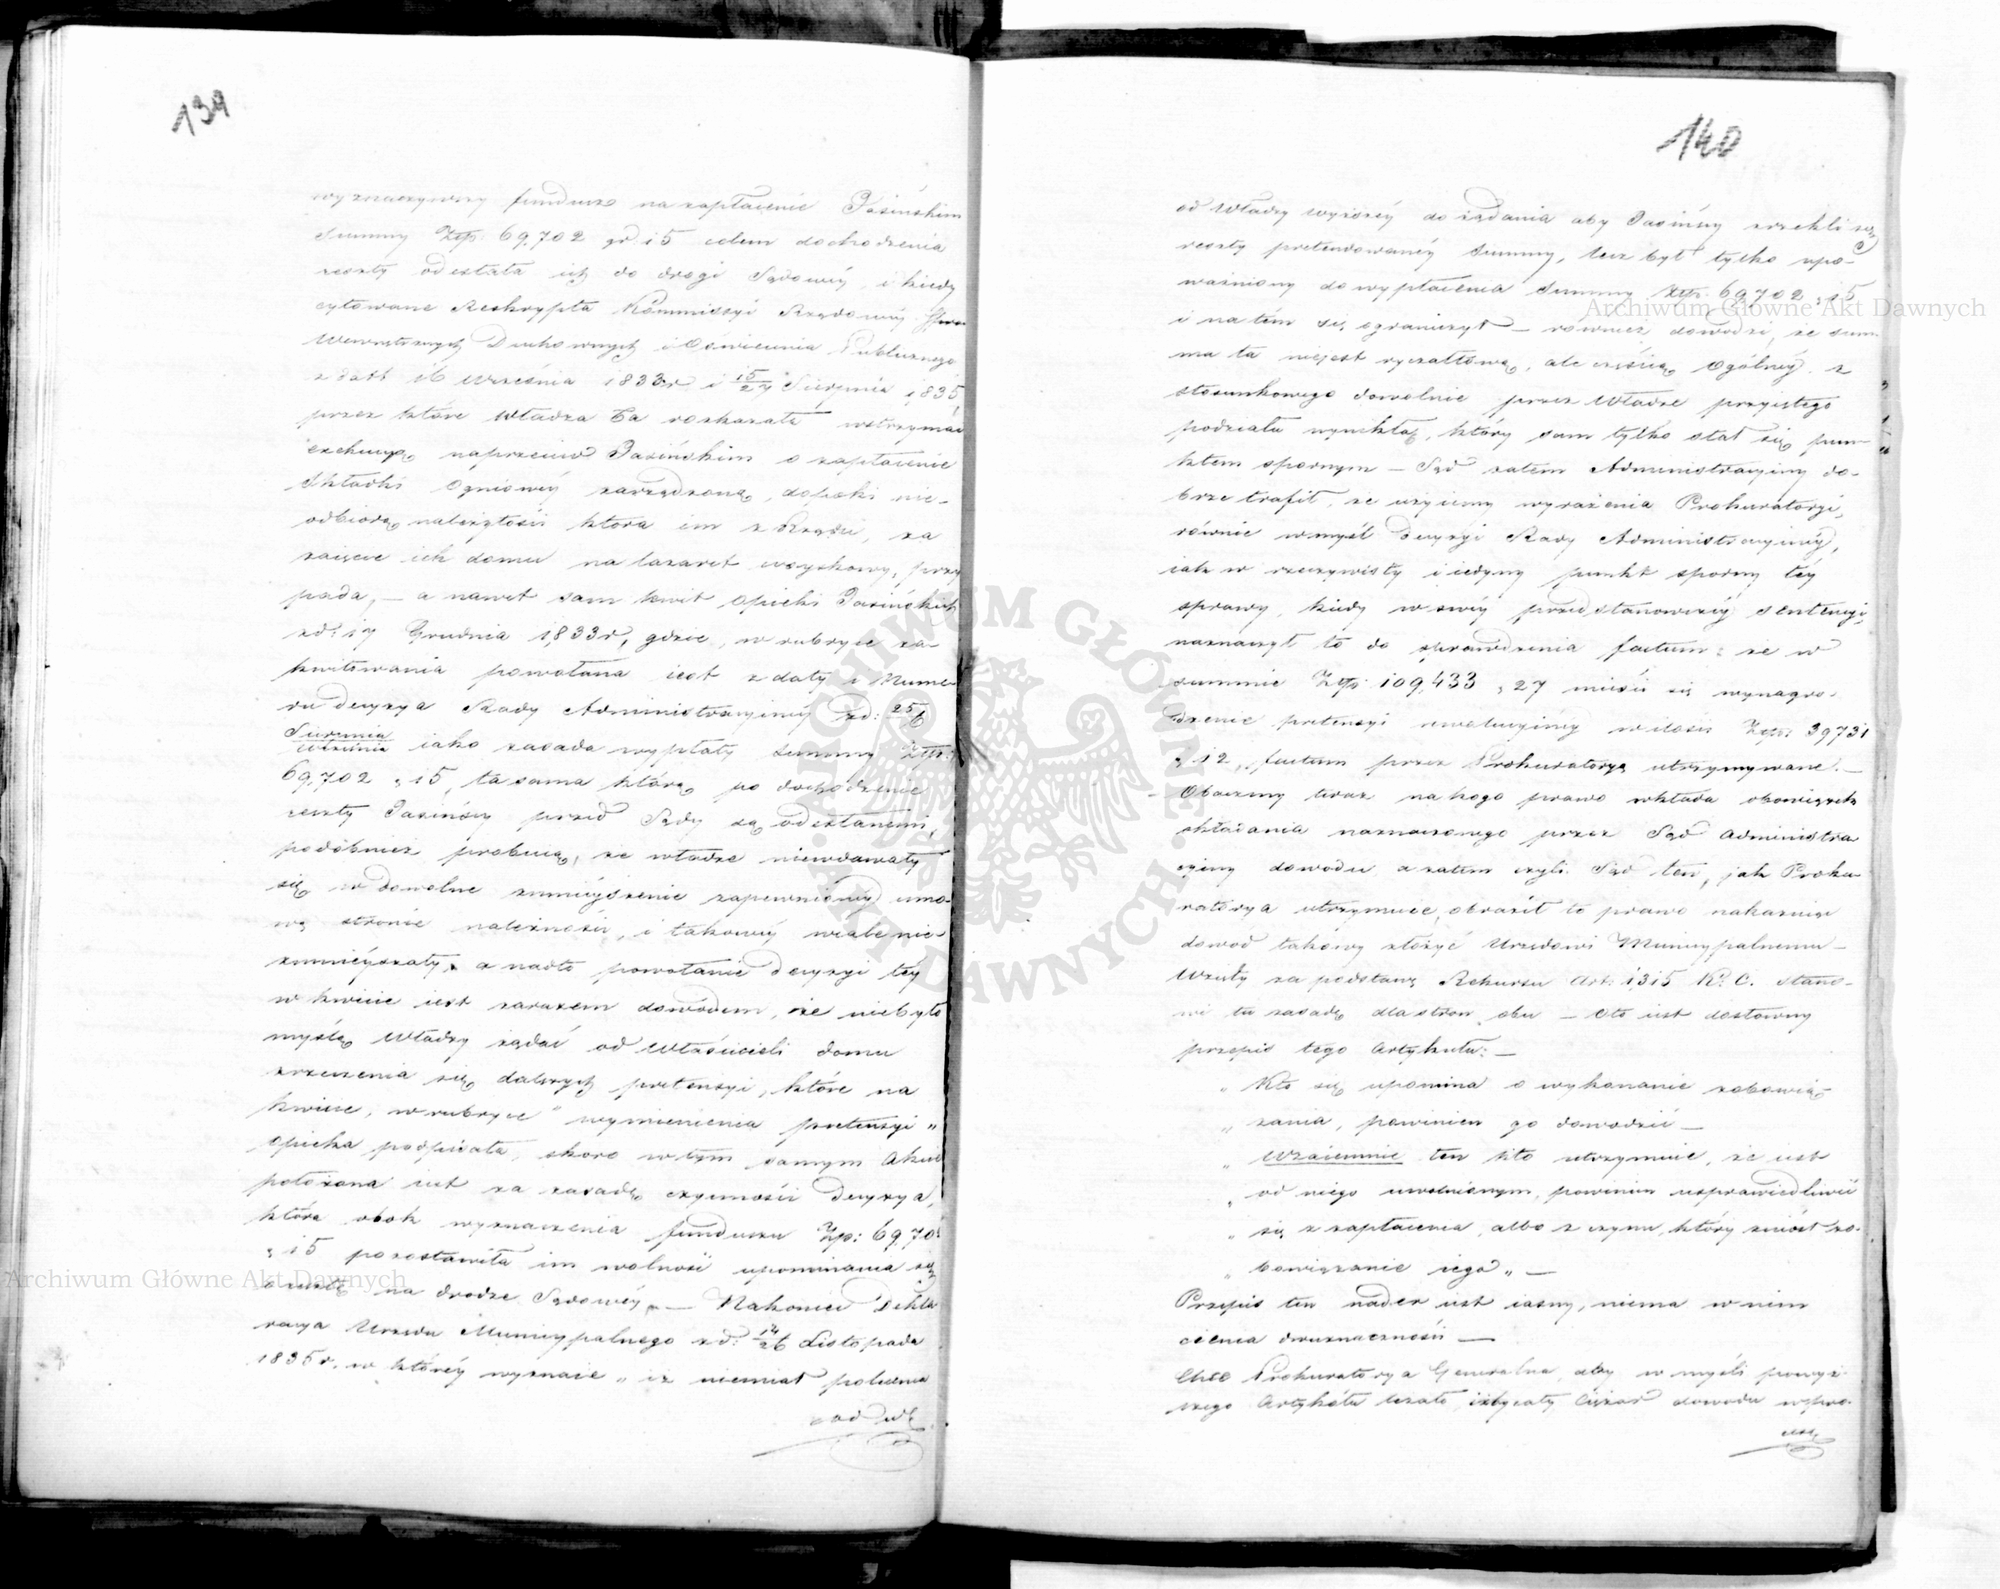 139
wyznaczywszy fundusz na zapłacenie Jasińskim
Summy Złp: 69,702 gr 15 celem dochodzenia
reszty odesłała ich do drogi Sądowéy, i kiedy
cytowane Reskrypta Kommissyi Rządowéy Spraw
Wewnętrznych Duchownych i Oświecenia Publicznego
z dat 16 Września 1833r i 15/27 Sierpnia 1835
przez które Władza ta rozkazała wstrzymać
exekucyą naprzeciw Jasińskim o zapłacenie
Składki Ogniowéy zarządzoną, dopóki nie-
odbiorą należytości która im z Rządu, za
zajęcie ich domu na lazaret woyskowy, przy
pada, — a nawet sam kwit Opieki Jasińskich
zd: 17 Grudnia 1833r, gdzie, w rubryce za-
kwitowania powołana iest z daty i Nume-
ru decyzya Rady Administracyinéy zd: 25/6
Sierpnia/Września iako zasada wypłaty Summy Złp:
69,702 „ 15, ta sama którą po dochodzenie
reszty Jasińscy przed Sądy są odesłanemi,
podobnież probuią, że władze niewdawały
się w dowolne zmnieyszenie zapewnionéy umo-
wą stronie należności, i takowéy wcale nie-
zmnieyszały, a nadto powołanie decyzyi téy
w kwicie iest zarazem dowodem, że niebyło
myślą Władzy żądać od właścicieli domu
zrzeczenia się dalszych pretensyi, które na
kwicie, w rubryce "wymienienia pretensyi„
opieka podpisała, skoro w tym samym Akcie
położona iest za zasadę czynności decyzya,
która obok wyznaczenia funduszu Złp: 69,702
„ 15 pozostawiła im wolność upominania się
o resztę na drodze Sądowéy. — Nakoniec Dekla
racya Urzędu Municypalnego zd: 14/26 Listopada
1835r. w któréy wyznaie „ iż niemiał polecenia
od Wł.
140
od Władzy wyższéy do żądania aby Jasińscy zrzekli się
reszty pretendowanéy Summy, lecz był tylko upo-
ważniony do wypłacenia Summy Złp: 69,702 „ 15
i na tém się ograniczył — również dowodzi, że Sum
ma ta nie iest ryczałtową, ale częścią ogólnéy z
stosunkowego dowolnie przez Władze przyiętego
podziału wynikłą, który sam tylko stał się pun-
ktem spornym — Sąd zatem Administracyiny do-
brze trafił, że użyiemy wyrażenia Prokuratoryi,
równie w myśl decyzyi Rady Administracyinéy,
iak w rzeczywisty i iedyny punkt sporny téy
sprawy, kiedy w swéy przedstanowczéy Sentencyi,
naznaczył to do sprawdzenia factum: że w
summie Złp: 109,433 „ 27 mieści się wynagro-
dzenie pretensyi rewolucyinéy w ilości Złp: 39731
„ 12, factum przez Prokuratoryą utrzymywane. —
Obaczmy teraz na kogo prawo wkłada obowiązek
składania naznaczonego przez Sąd Administra
cyiny dowodu a zatem czyli Sąd ten, jak Proku-
ratorya utrzymuie, obraził to prawo nakazuiąc
dowód takowy złożyć Urzędowi Municypalnemu —
Wzięty za podstawę Rekursu Art: 1315 K. C. stano-
wi tu zasadę dla stron obu — Oto iest dosłowny
przepis tego Artykułu: —
„ Kto się upomina o wykonanie zobowią-
„ zania, powinien go dowodzić —
„ Wzaiemnie ten kto utrzymuie, że iest
„ od niego uwolnionym, powinien usprawiedliwić
„ się z zapłacenia, albo z czynu, który zniósł zo-
„ bowiązanie iego „ —
Przepis ten nader iest iasny, niema w nim
cienia dwuznaczności —
Chce Prokuratorya Generalna, aby w myśli powyż-
szego Artykułu